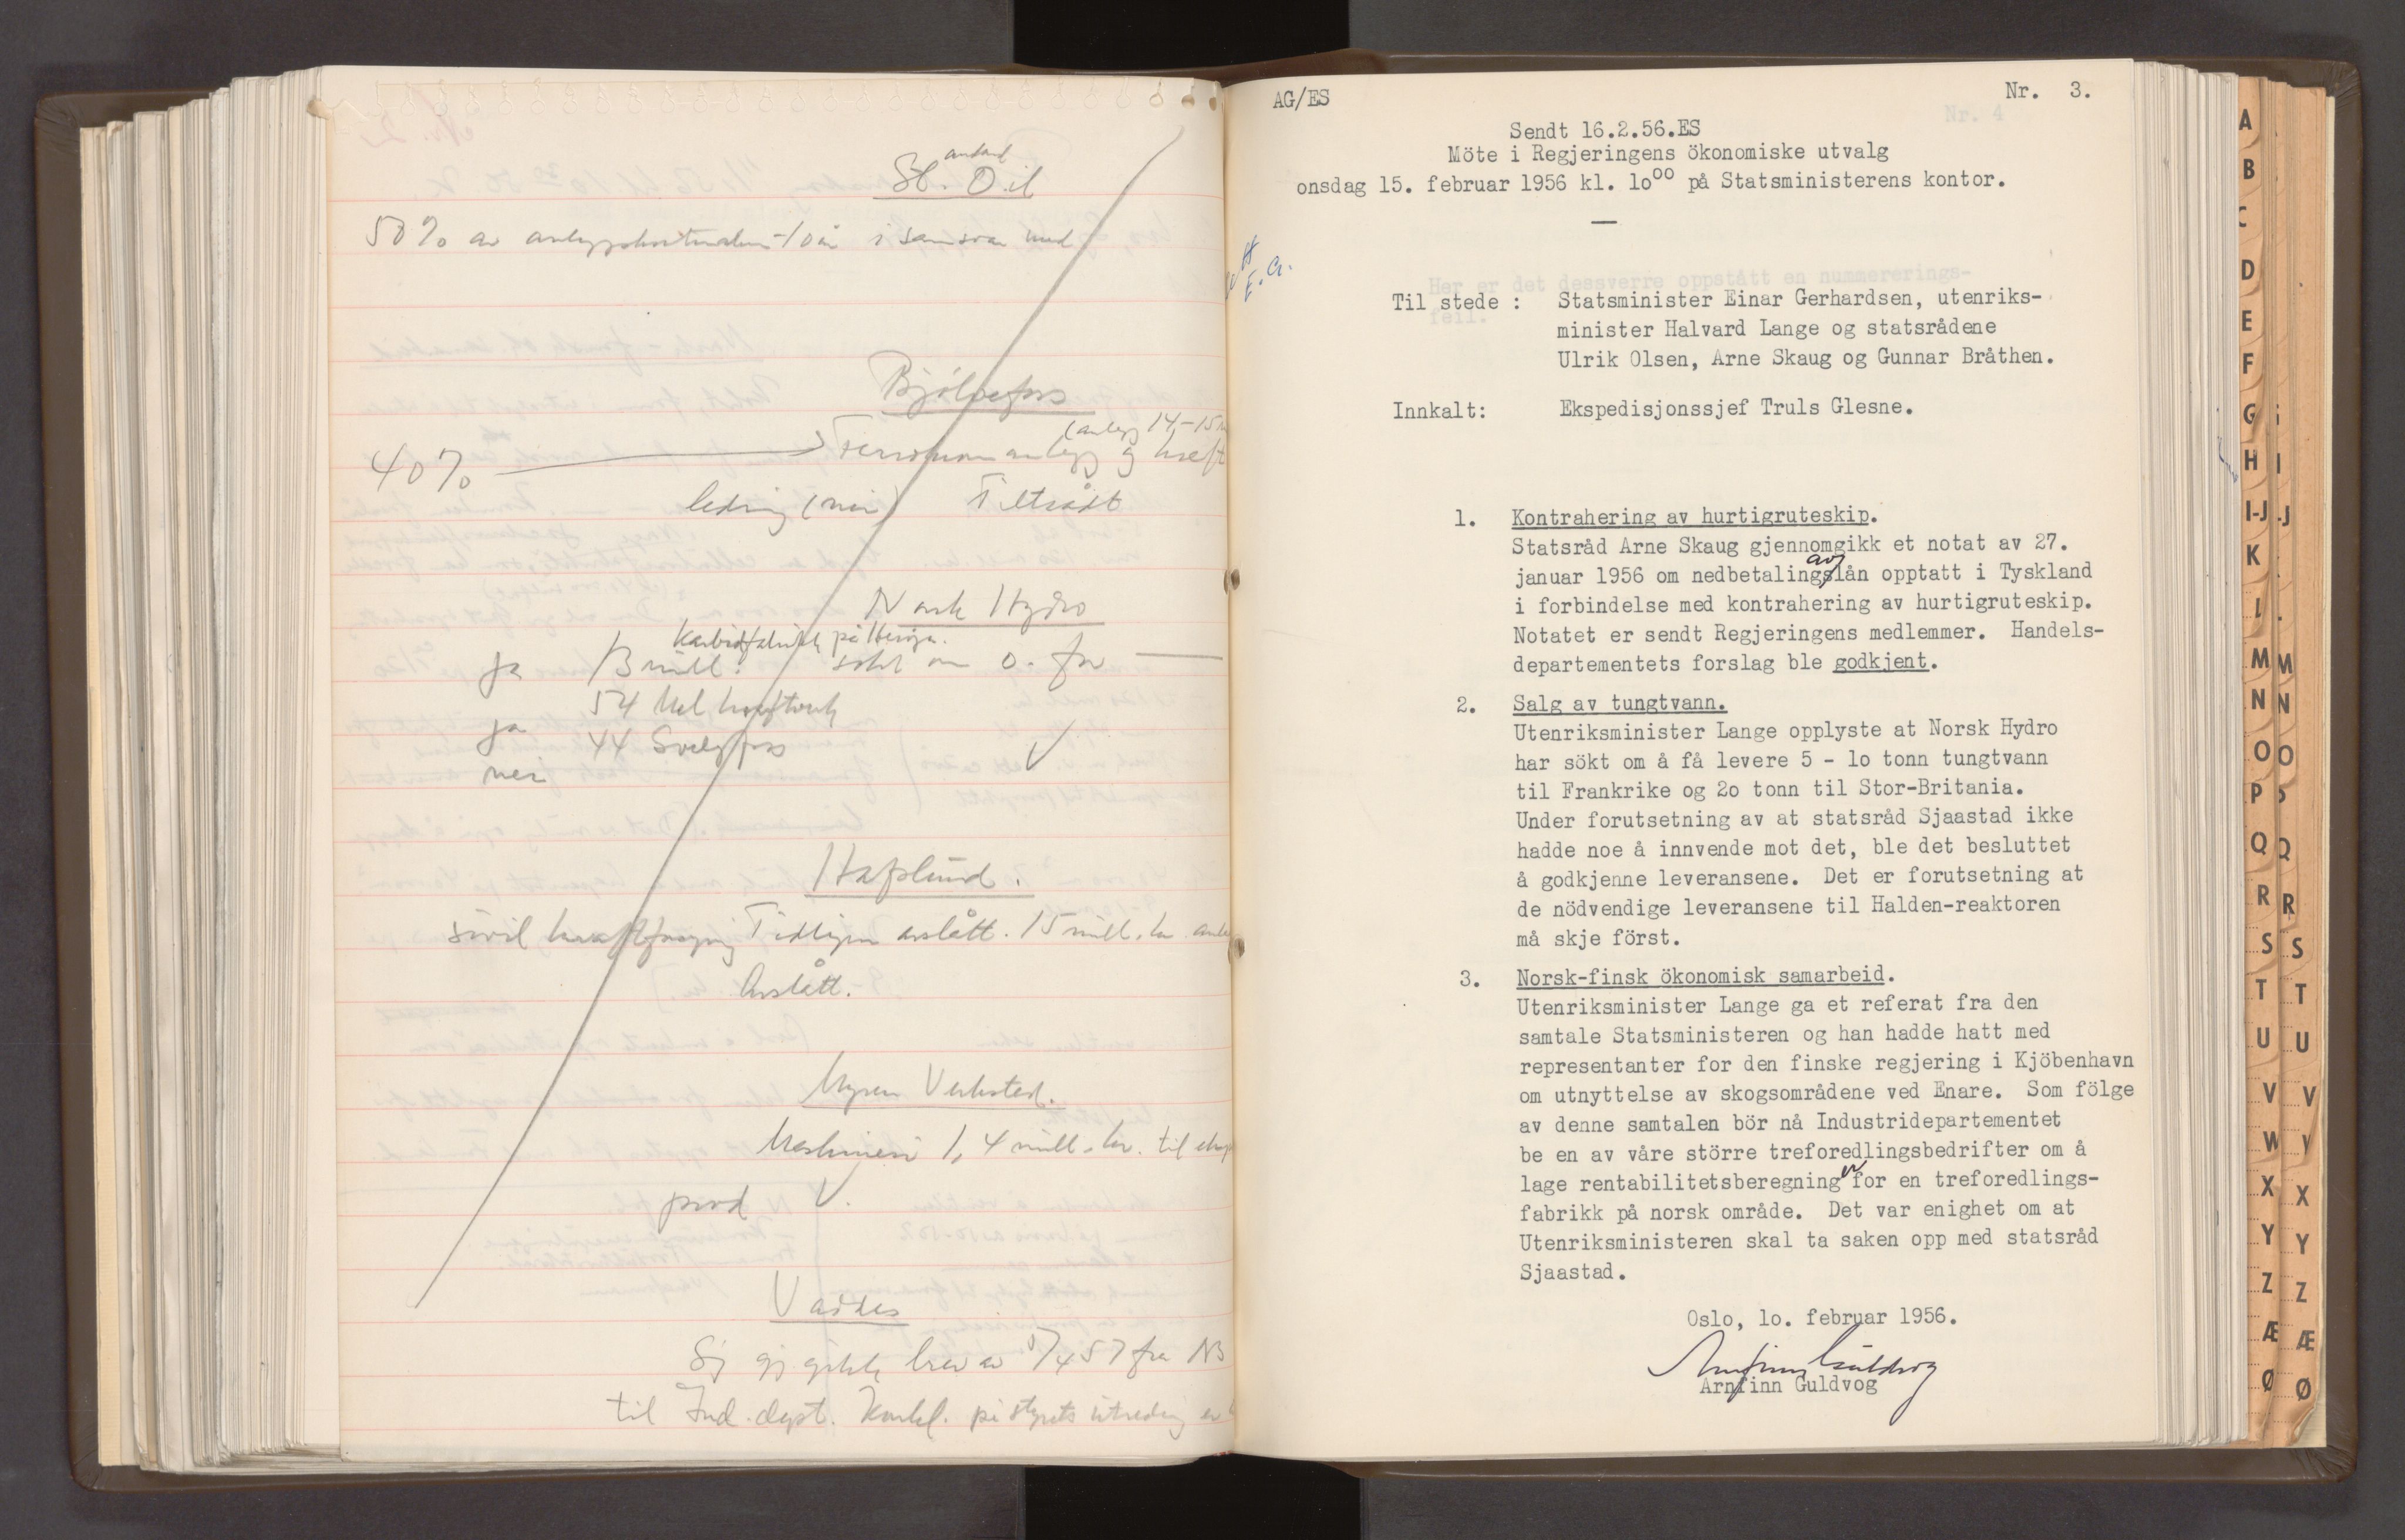 St.and. Oil
50 % av anleggskostnaden - 10 år i samsvar med
Bjölvefoss
(anlegg 14,-15 m
40 % Ferrokrom anlegg og kraft
ledning (nei) Tilrådt
Norsk Hydro
Karbidfabrikk på Heröya.
ja 13 mill. sökt om o. for
54 Mel kraftverk
ja 44 Svelgfoss
nei V
Hafslund.
sivil kraftforsyning Tidligere avslått. 15 mill. kr.
Avslått.
Myren Verksted.
Maskineri 1,4 mill. kr. til
prod V.
Vaddas
Sj gj.gikk brev av 5/4 57 fra NB
til Ind. dept. Konkl. på styrets utredning er
AG/ES
Nr. 3.
Sendt 16.2.56.ES
Möte i Regjeringens ökonomiske utvalg
onsdag 15. februar 1956 kl. lo00 på Statsministerens kontor.
E. G.
Til stede : Statsminister Einar Gerhardsen, utenriks-
minister Halvard Lange og statsrådene
Ulrik Olsen, Arne Skaug og Gunnar Bråthen.
Innkalt: Ekspedisjonssjef Truls Glesne.
1. Kontrahering av hurtigruteskip.
Statsråd Arne Skaug gjennomgikk et notat av 27.
januar 1956 om nedbetaling av lån opptatt i Tyskland
i forbindelse med kontrahering av hurtigruteskip.
Notatet er sendt Regjeringens medlemmer. Handels-
departementets forslag ble godkjent.
2. Salg av tungtvann.
Utenriksminister Lange opplyste at Norsk Hydro
har sökt om å få levere 5 - lo tonn tungtvann
til Frankrike og 2o tonn til Stor-Britania.
Under forutsetning av at statsråd Sjaastad ikke
hadde noe å innvende mot det, ble det besluttet
å godkjenne leveransene. Det er forutsetning at
de nödvendige leveransene til Halden-reaktoren
må skje först.
3. Norsk-finsk ökonomisk samarbeid.
Utenriksminister Lange ga et referat fra den
samtale Statsministeren og han hadde hatt med
representanter for den finske regjering i Kjöbenhavn
om utnyttelse av skogsområdene ved Enare. Som fölge
av denne samtalen bör nå Industridepartementet
be en av våre större treforedlingsbedrifter om å
lage rentabilitetsberegninger for en treforedlings-
fabrikk på norsk område. Det var enighet om at
Utenriksministeren skal ta saken opp med statsråd
Sjaastad.
Oslo, lo. februar 1956.
Arnfinn Guldvog
Arnfinn Guldvog
A
B
C
D
E
F
G
H
I-J
K
L
M
N
O
P
Q
R
S
T
U
V
W
X
Y
Z
Æ
Ø